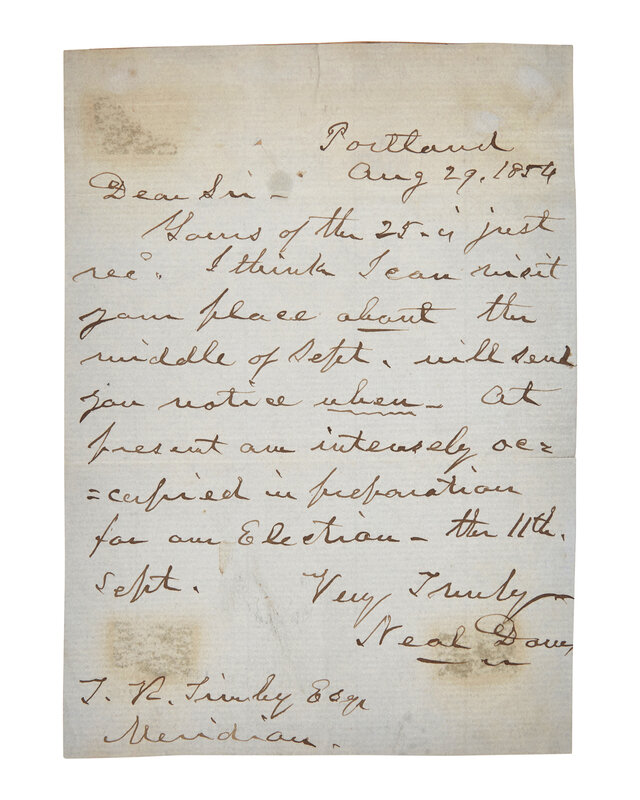 Portland
Aug 29, 1854
Dear Sir -
Yours of the 25 - is just
recd. I think I can visit
your place about the
middle of Sept. will send
you notice when - At
present am intensely oc=
=cupied in preparation
for our Election - the 11th.
Sept. Very Truly
Neal Dow
T. R. Timby Esqr
Meridian.